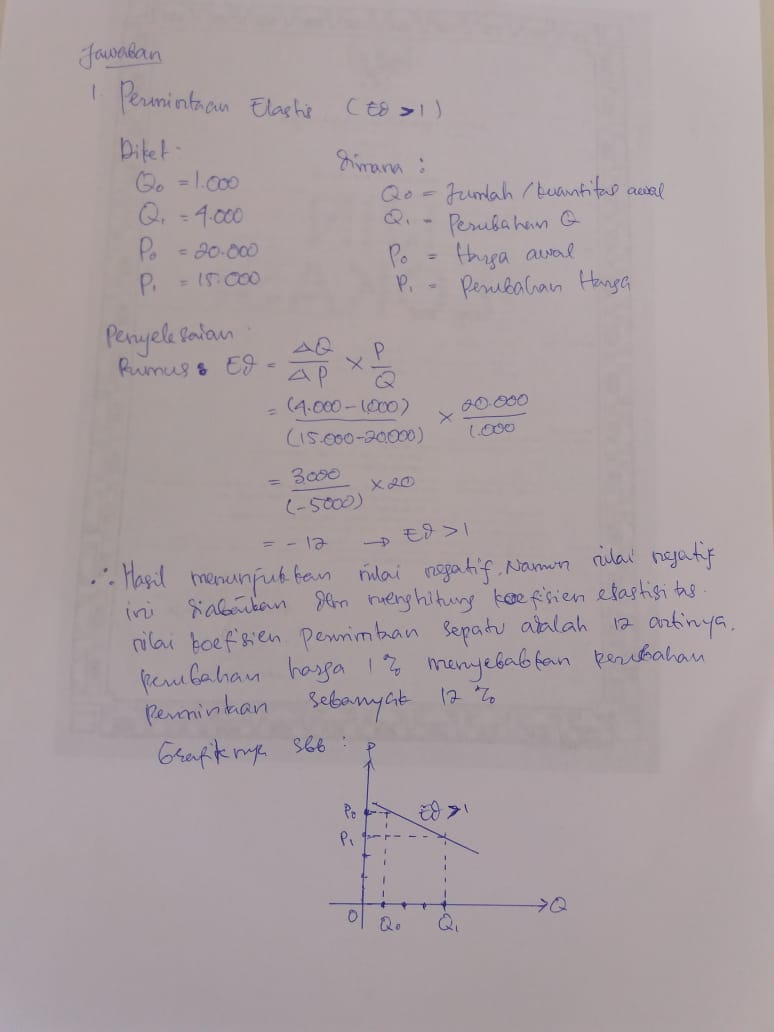 Jawaban
1. Permintaan Elastis (Ed > 1)
Diket :
Dimana :
Q₀ = 1.000
Q₀ = Jumlah / kuantitas awal
Q₁ = 4.000
Q₁ = Perubahan Q
P₀ = 20.000
P₀ = Harga awal
P₁ = 15.000
P₁ = Perubahan Harga
Penyelesaian
Rumus : Ed = ΔQ/ΔP × P/Q
= (4.000-1.000)/(15.000-20.000) × 20.000/1.000
= 3000/(-5000) × 20
= -12 → Ed > 1
∴ Hasil menunjukkan nilai negatif. Namun nilai negatif
ini diabaikan dlm menghitung koefisien elastisitas.
nilai koefisien permintaan sepatu adalah 12 artinya.
perubahan harga 1 % menyebabkan perubahan
permintaan sebanyak 12 %
Grafiknya sbb :
P
P₀
Ed > 1
P₁
0
Q₀
Q₁
Q